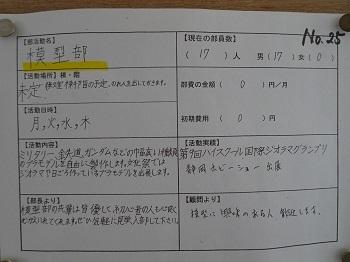 No.25
【部活動名】
模型部
【現在の部員数】
(17)人 男(17)女(0)
【活動場所】棟・階
未定
部費の金額(0)円/月
【活動日時】
月,火,水,木
初期費用(0)円
【活動内容】
ミリタリー,鉄道,ガンダムなどの
のプラモデルを自由に製作します。文化祭では
ジオラマや日ごろ作っているプラモデルを出展します。
【活動実績】
第9回ハイスクール国際ジオラマグランプリ
静岡ホビーショー 出展
【部長より】
模型部の先輩は皆優しく、初心者の人も心よく
気軽に見学、入部して下さい。
【顧問より】
模型に興味のある人 歓迎します。